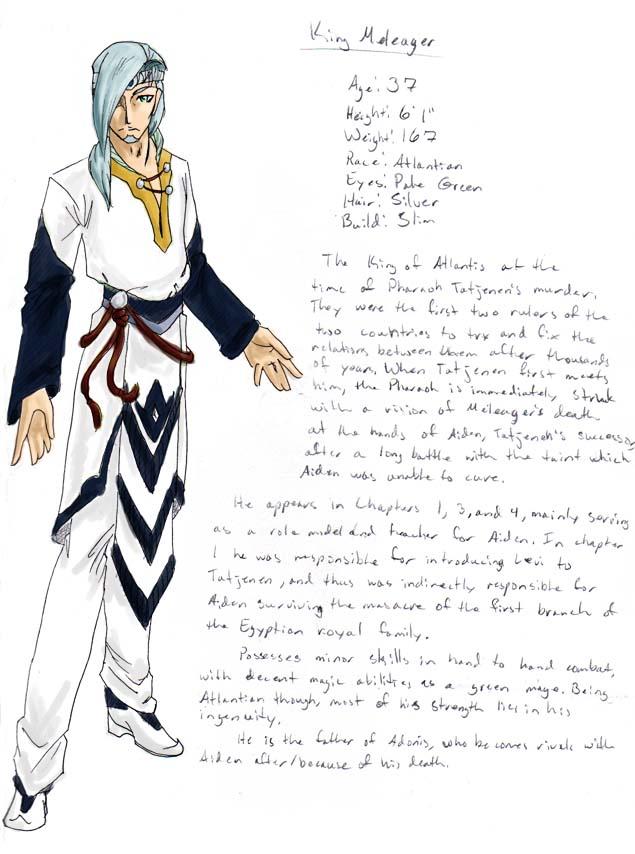 King Meleager
Age: 37
Height: 6' 1"
Weight: 167
Race: Atlantian
Eyes: Pale Green
Hair: Silver
Build: Slim
The King of Atlantis at the
time of Pharaoh Tatjenen's murder.
They were the first two rulers of the
two countries to try and fix the
relations between them after thousands
of years. When Tatjenen first meets
him, the Pharaoh is immediately struck
with a vision of Meleager's death
at the hands of Aiden, Tatjenen's successor
after a long battle with the taint which
Aiden was unable to cure.
He appears in Chapters 1, 3, and 4, mainly serving
as a role model and teacher for Aiden. In chapter
1 he was responsible for introducing Levi to
Tatjenen, and thus was indirectly responsible for
Aiden surviving the masacre of the first branch of
the Egyption royal family.
Possesses minor skills in hand to hand combat,
with decent magic abilities as a green mage. Being
Atlantian though, most of his strength lies in his
ingenuity.
He is the father of Adonis, who becomes rivals with
Aiden after/because of his death.